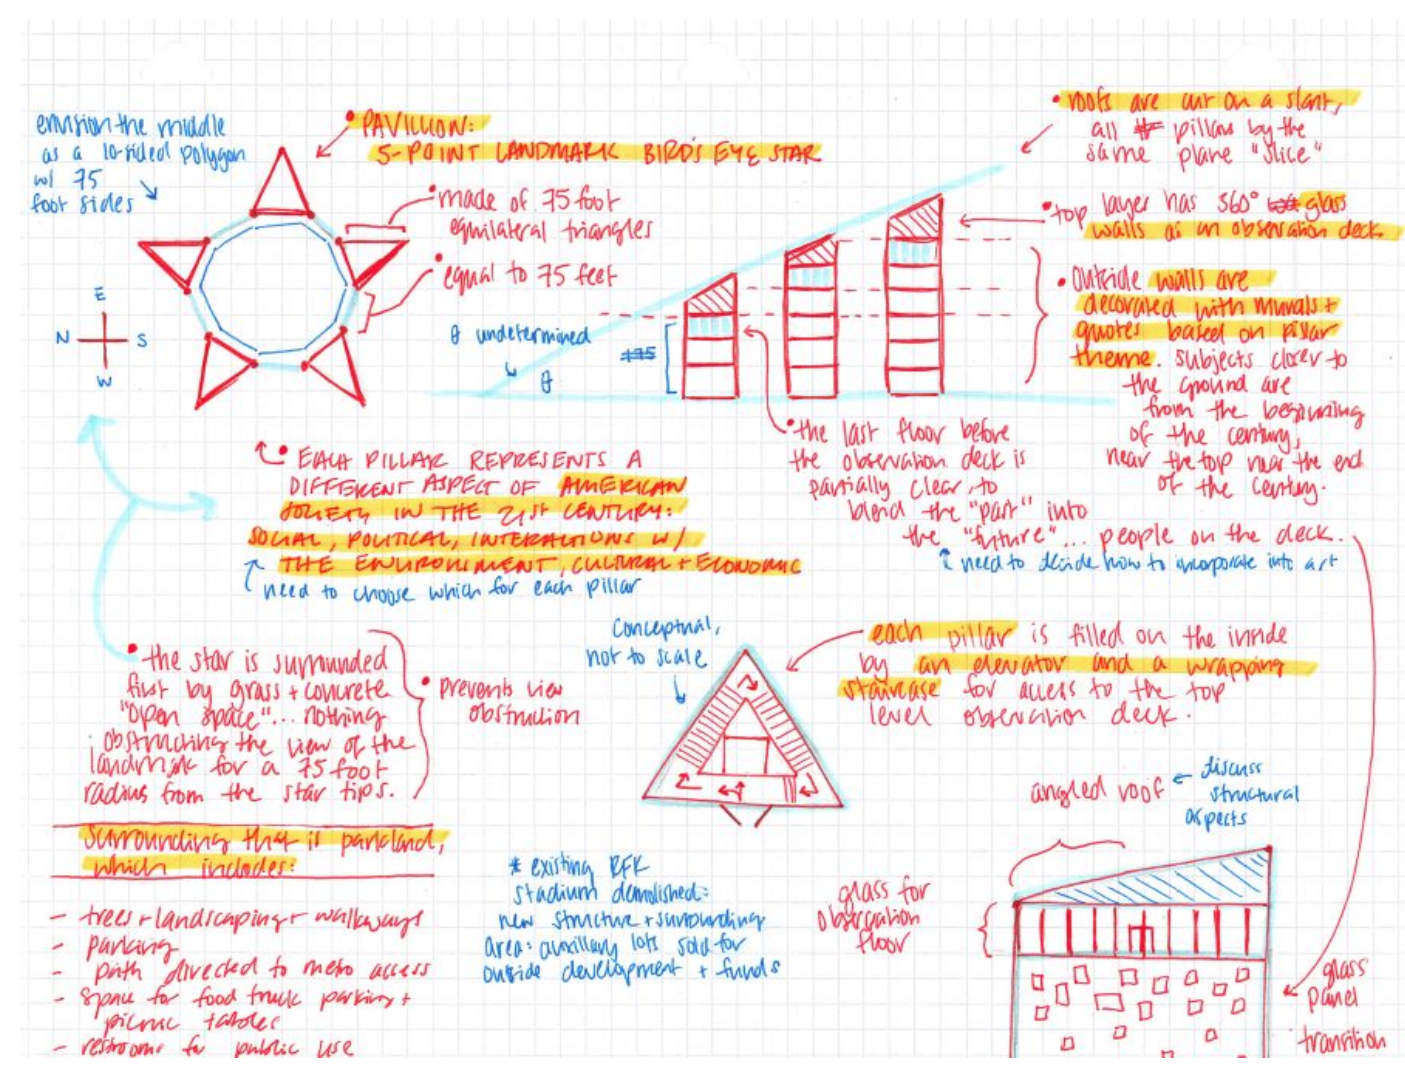 envision the middle
as a 10-sided polygon
w/ 75
foot sides
• PAVILLION:
5-POINT LANDMARK BIRD'S EYE STAR
• made of 75 foot
equilateral triangles
• equal to 75 feet
E
N S
W
• roofs are cut on a slant,
all pillars by the
same plane "slice"
• top layer has 360° glass
walls as an observation deck
• Outside walls are
decorated with murals +
quotes based on pillar
theme. subjects closer to
the ground are
from the beginning
of the century,
near the top near the end
of the century.
θ undetermined
θ
• the last floor before
the observation deck is
partially clear, to
blend the "part" into
the "future"... people on the deck.
need to decide how to incorporate into art
• EACH PILLAR REPRESENTS A
DIFFERENT ASPECT OF AMERICAN
SOCIETY IN THE 21ST CENTURY:
SOCIAL, POLITICAL, INTERACTIONS W/
THE ENVIRONMENT, CULTURAL + ECONOMIC
need to choose which for each pillar
• the star is surrounded
first by grass + concrete
"open space"... nothing
obstructing the view of the
landmark for a 75 foot
radius from the star tips.
• prevents view
obstruction
Conceptual,
not to scale
each pillar is filled on the inside
by an elevator and a wrapping
staircase for access to the top
level observation deck.
Surrounding that is parkland,
which includes:
- trees + landscaping + walkways
- parking
- path directed to metro access
- space for food truck parking +
picnic tables
- restrooms for public use
* existing RFK
stadium demolished:
new structure + surrounding
area: auxillary lots sold for
outside development + funds
angled roof
discuss
structural
aspects
glass for
observation
floor
glass
panel
transition